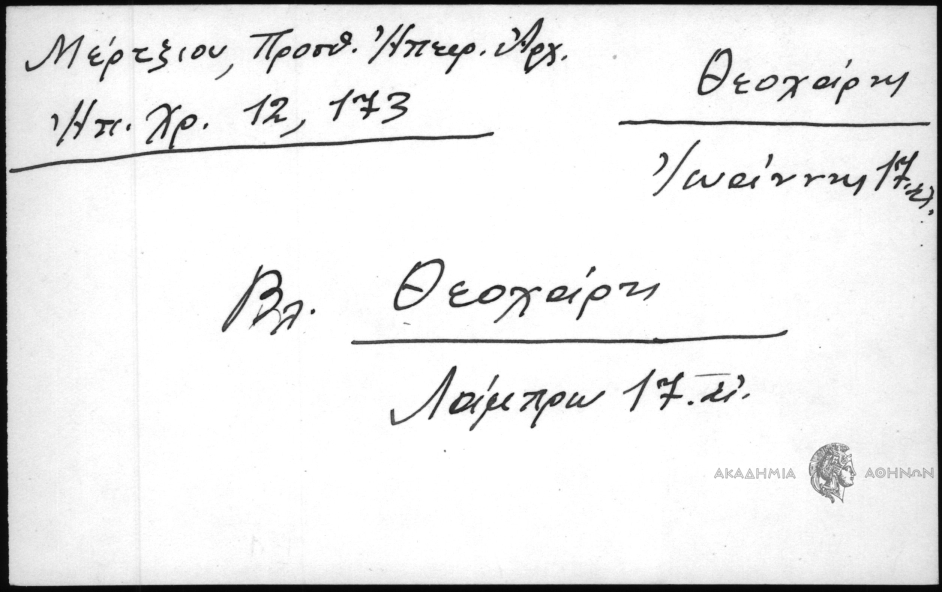 Μέρτζιου, Προσθ. Ἠπειρ. Ἀρχ.
Ἠπ. Χρ. 12, 173
Θεοχάρης
Ἰωάννης 17.
Βλ. Θεοχάρης
Λάμπρω 17.
ΑΚΑΔΗΜΙΑ ΑΘΗΝΩΝ